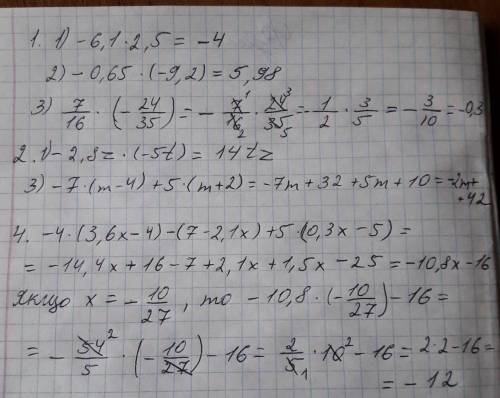 1. 1) -6,1·2,5 = -4
2) -0,65·(-9,2) = 5,98
3) 7/16 · (-24/35) = - 7¹/16₂ · 24³/35₅ = -1/2 · 3/5 = -3/10 = -0,3
2. 1) -2,8z·(-5t) = 14tz
3) -7·(m-4)+5·(m+2) = -7m+32+5m+10 = -2m+
+42
4. -4·(3,6x-4)-(7-2,1x)+5·(0,3x-5) =
= -14,4x+16-7+2,1x+1,5x-25 = -10,8x-16
якщо x = -10/27, то -10,8·(-10/27)-16 =
= - 54²/5 · (-10/27) -16 = 2/5₁ · 10² -16 = 2·2-16 =
= -12